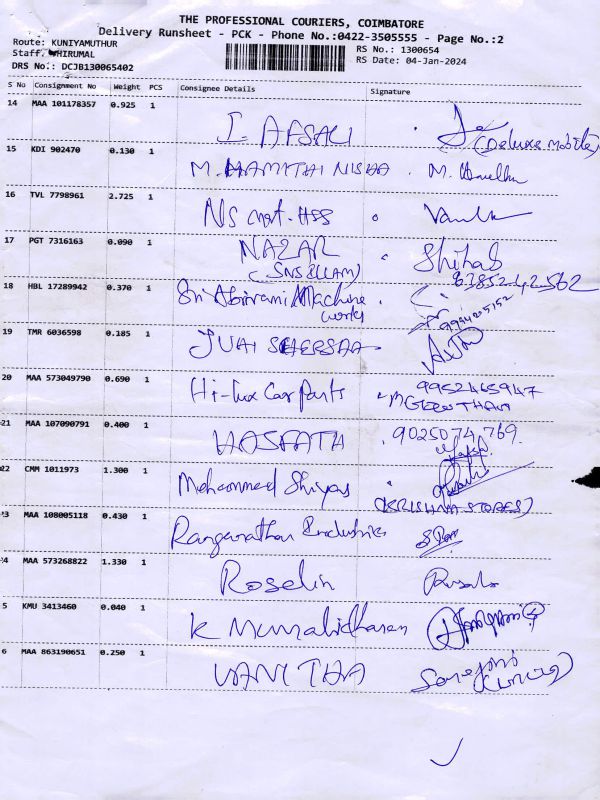 THE PROFESSIONAL COURIERS, COIMBATORE
Delivery Runsheet - PCK - Phone No.:0422-3505555 - Page No.:2
Route: KUNIYAMUTHUR
RS No.: 1300654
Staff. THIRUMAL
RS Date: 04-Jan-2024
DRS No.: DCJB130065402
S No Consignment No Weight PCS Consignee Details Signature
14 MAA 101178357 0.925 1 I. AFSALI
(Deluxe mobile)
15 KDI 902470 0.130 1 M. HAMITHI NISHA M.
16 TVL 7798961 2.725 1 NS mat. HSS
17 PGT 7316163 0.090 1 NAZAR Shihab
(SNS ILLAM) 6385242562
18 HBL 17289942 0.370 1 Sri Abirami Machine
works
19 TMR 6036598 0.185 1
20 MAA 573049790 0.690 1 Hi-lux Car Parts 9952465947
21 MAA 107090791 0.400 1 HASFATH 9025074769.
22 CMM 1011973 1.300 1 Mohammed Shiyas
(KRISHNA STORES)
3 MAA 108005118 0.430 1 Ranganathan Industries
4 MAA 573268822 1.330 1 Roselin
5 KMU 3413460 0.040 1 K Muralidharan
6 MAA 863190651 0.250 1 VANITHA